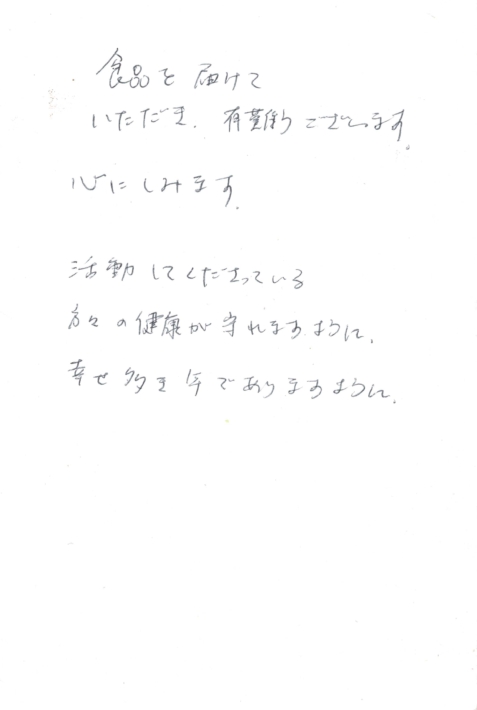 食品を届けて
いただき、有難うございます。
心にしみます。
活動してくださっている
方々の健康が守れますように、
幸せ多き年でありますように、